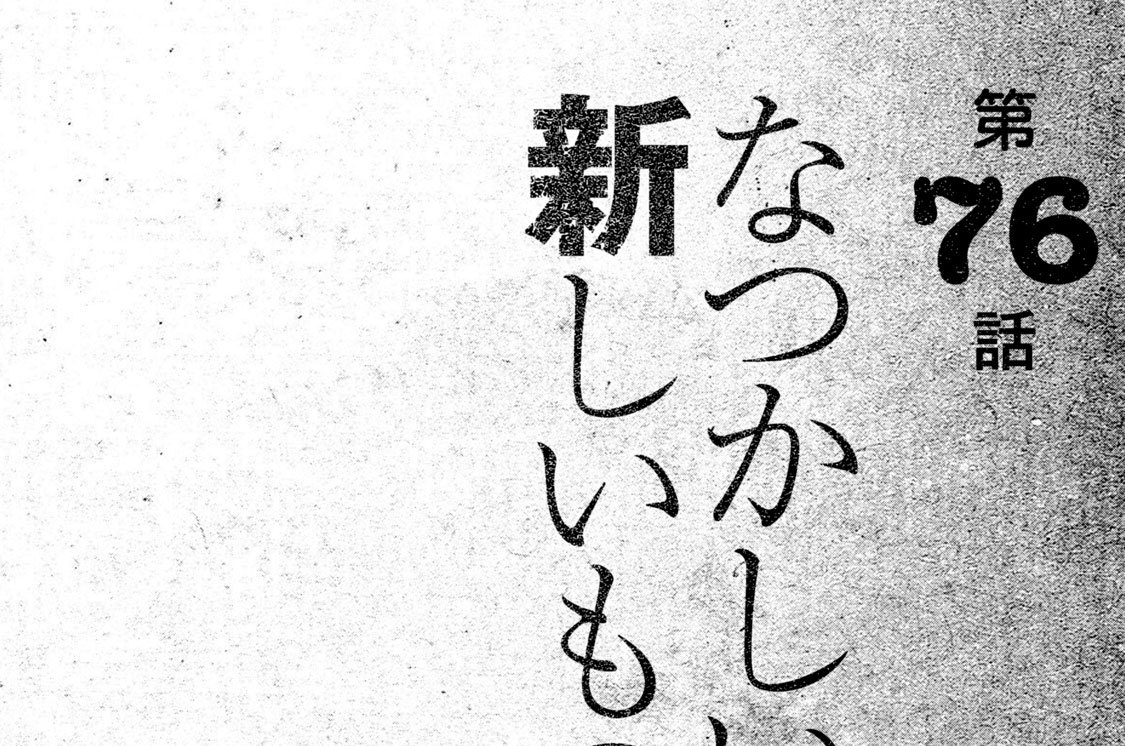 第76話
なつかしい
新しいも